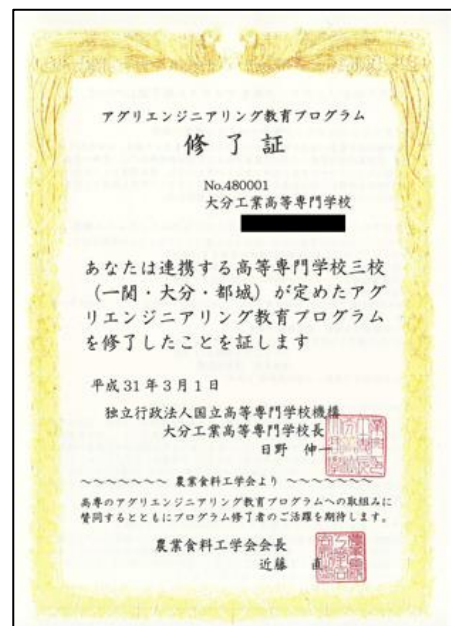 アグリエンジニアリング教育プログラム
修了証
No.480001
大分工業高等専門学校
あなたは連携する高等専門学校三校
（一関・大分・都城）が定めたアグ
リエンジニアリング教育プログラム
を修了したことを証します
平成31年3月1日
独立行政法人国立高等専門学校機構
大分工業高等専門学校長
日野 伸一
～～～～～～～ 農業食料工学会より ～～～～～～～
高専のアグリエンジニアリング教育プログラムへの取組みに
賛同するとともにプログラム修了者のご活躍を期待します。
農業食料工学会会長
近藤 直